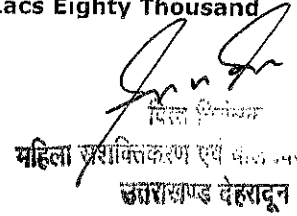 Lacs Eighty Thousand
वित्त नियंत्रक
महिला सशक्तिकरण एवं बाल
उत्तराखण्ड देहरादून